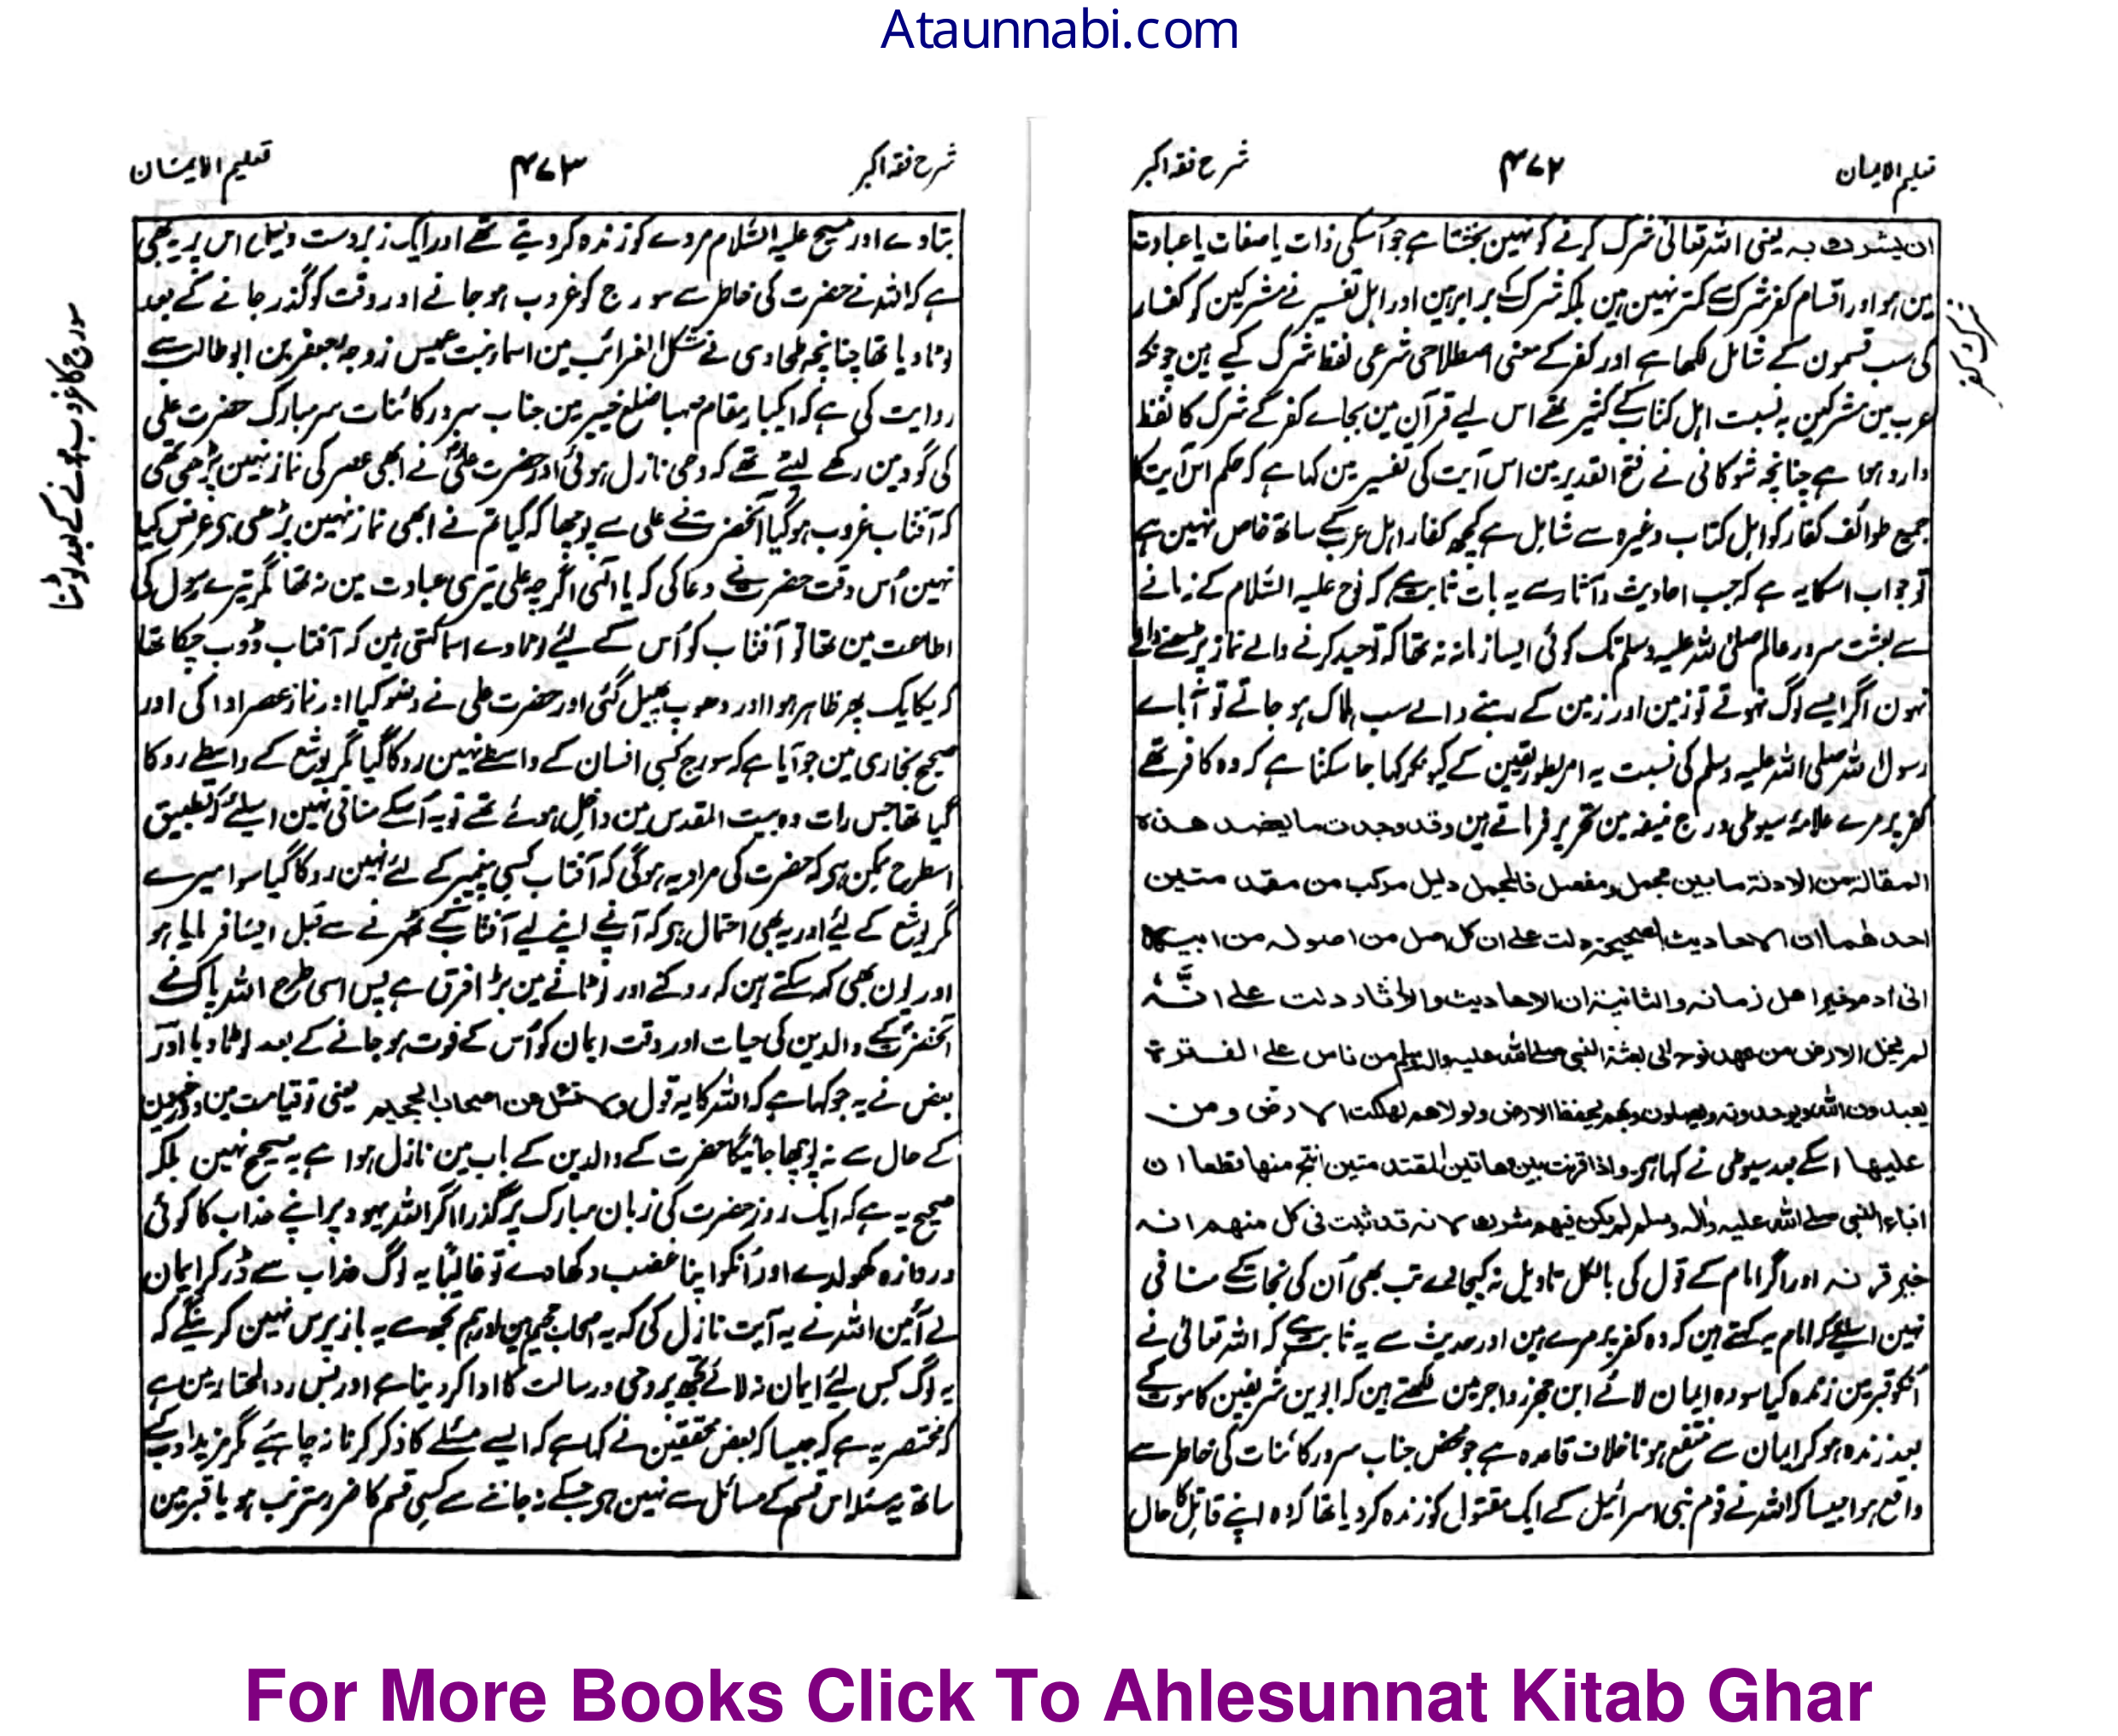 Ataunnabi.com
تعلیم الایمان ۴۷۲ شرح فقہ اکبر
ان یشرک بہ یعنی اللہ تعالیٰ شرک کرنے کو نہین بخشتا ہے جو اُسکی ذات یا صفات یا عبادت
مین ہو اور اقسام کفر شرک سے کمتر نہین ہین بلکہ شرک کے برابر ہین اور اہل تفسیر نے مشرکین کو کفار
کی سب قسمون کے شامل لکھا ہے اور کفر کے معنی اصطلاحی شرعی لفظ شرک کے ہین چونکہ
عرب مین مشرکین بہ نسبت اہل کتاب کے کثیر تھے اس لیے قرآن مین بجاے کفر کے شرک کا لفظ
وارد ہوا ہے چنانچہ شوکانی نے فتح القدیر مین اس آیت کی تفسیر مین کہا ہے کہ حکم اس آیت کا
جمیع طوائف کفار کو اہل کتاب وغیرہ سے شامل ہے کچھ کفار اہل عرب کے ساتھ خاص نہین ہے
تو جواب اسکا یہ ہے کہ جب احادیث و آثار سے یہ بات ثابت ہے کہ نوح علیہ السلام کے زمانے
سے بعثت سرور عالم صلی اللہ علیہ وسلم تک کوئی ایسا زمانہ نہ تھا کہ توحید کرنے والے نماز پڑھنے والے
نہون اگر ایسے لوگ نہوتے تو زمین اور زمین کے رہنے والے سب ہلاک ہو جاتے تو آباے
رسول اللہ صلی اللہ علیہ وسلم کی نسبت یہ امر بطور یقین کے کیونکر کہا جا سکتا ہے کہ وہ کافر تھے
کفر پر مرے علامۂ سیوطی درج منیفہ مین تحریر فرماتے ہین وقد وجدت ما یعضد ھذہ
المقالۃ من الادلۃ ما بین مجمل ومفصل فالمجمل دلیل مرکب من مقدمتین
احدھما ان الاحادیث الصحیحۃ دلت علی ان کل اصل من اصولہ من ابیہ
الی ادم خیر اھل زمانہ والثانیۃ ان الاحادیث والاثار دلت علی انّہ
لم یخل الارض من عھد نوح الی بعثۃ النبی صلی اللہ علیہ والہ وسلم من ناس علی الفترۃ
یعبدون اللہ ویوحدونہ ویصلون وبھم یحفظ الارض ولولاھم لھلکت الارض ومن
علیھا اسکے بعد سیوطی نے کہا ہے واذا قرنت بین ھاتین المقدمتین انتج منھا قطعا ان
اباء النبی صلی اللہ علیہ والہ وسلم لم یکن فیھم مشرک لانہ قد ثبت فی کل منھم انہ
خیر قرنہ اور اگر امام کے قول کی بالکل تاویل نہ کیجاے تب بھی اُن کی نجات کے منافی
نہین اسلیے کہ امام یہ کہتے ہین کہ وہ کفر پر مرے ہین اور حدیث سے یہ ثابت ہے کہ اللہ تعالیٰ نے
اُنکو قبر مین زندہ کیا سو وہ ایمان لائے ابن حجر زواجر مین لکھتے ہین کہ ابوین شریفین کا موت کے
بعد زندہ ہو کر ایمان سے منتفع ہونا خلاف قاعدہ ہے جو محض جناب سرور کائنات کی خاطر سے
واقع ہوا جیسا کہ اللہ نے قوم بنی اسرائیل کے ایک مقتول کو زندہ کر دیا تھا کہ وہ اپنے قاتل کا حال
شرح فقہ اکبر ۴۷۳ تعلیم الایمان
بتادے اور مسیح علیہ السلام مردے کو زندہ کر دیتے تھے اور ایک زبردست دلیل اس پر یہ بھی
ہے کہ اللہ نے حضرت کی خاطر سے سورج کو غروب ہو جانے اور وقت کو گذر جانے کے بعد
لوٹا دیا تھا چنانچہ طحاوی نے مشکل الغرائب مین اسماء بنت عمیس زوجہ جعفر بن ابوطالب سے
روایت کی ہے کہ ایکبار بمقام صہبا ضلع خیبر مین جناب سرور کائنات سر مبارک حضرت علی
کی گود مین رکھے لیٹے تھے کہ وحی نازل ہوئی اور حضرت علیؓ نے ابھی عصر کی نماز نہین پڑھی تھی
کہ آفتاب غروب ہو گیا آنحضرت نے علی سے پوچھا کہ کیا تم نے ابھی نماز نہین پڑھی ہے عرض کیا
نہین اُس وقت حضرت نے دعا کی کہ یا الٰہی اگرچہ علی تیری عبادت مین نہ تھا مگر تیرے رسول کی
اطاعت مین تھا تو آفتاب کو اُس کے لیے لوٹا دے اسما کہتی ہین کہ آفتاب ڈوب چکا تھا
کہ یکایک پھر ظاہر ہوا اور دھوپ پھیل گئی اور حضرت علی نے وضو کیا اور نماز عصر ادا کی اور
صحیح بخاری مین جو آیا ہے کہ سورج کسی انسان کے واسطے نہین روکا گیا مگر یوشع کے واسطے روکا
گیا تھا جس رات وہ بیت المقدس مین داخل ہوئے تھے تو یہ اُسکے منافی نہین اسلیے کہ تطبیق
اسطرح ممکن ہے کہ حضرت کی مراد یہ ہوگی کہ آفتاب کسی پیغمبر کے لئے نہین روکا گیا سوا میرے
مگر یوشع کے لیے اور یہ بھی احتمال ہے کہ آپ نے اپنے لیے آفتاب کے ٹھہرنے سے قبل ایسا فرمایا ہو
اور یون بھی کہہ سکتے ہین کہ روکنے اور لوٹانے مین بڑا فرق ہے پس اسی طرح اللہ پاک نے
آنحضرت کے والدین کی حیات اور وقت ایمان کو اُس کے فوت ہو جانے کے بعد لوٹا دیا اور
بعض نے یہ جو کہا ہے کہ اللہ کا یہ قول ولا تسئل عن اصحاب الجحیم یعنی تو قیامت مین دوزخیون
کے حال سے نہ پوچھا جائیگا حضرت کے والدین کے باب مین نازل ہوا ہے یہ صحیح نہین بلکہ
صحیح یہ ہے کہ ایک روز حضرت کی زبان مبارک پر گذرا اگر اللہ یہود پر اپنے عذاب کا کوئی
دروازہ کھولدے اور اُنکو اپنا غضب دکھا دے تو غالباً یہ لوگ عذاب سے ڈر کر ایمان
لے آئین اللہ نے یہ آیت نازل کی کہ یہ اصحاب جحیم ہین اور ہم تجھ سے یہ بازپرس نہین کرینگے کہ
یہ لوگ کس لیے ایمان نہ لائے تجھ پر وحی و رسالت کا ادا کر دینا ہے اور بس رد المحتار مین ہے
کہ مختصر یہ ہے کہ جیسا کہ بعض محققین نے کہا ہے کہ ایسے مسئلے کا ذکر کرنا نہ چاہیے مگر مزید ادب کے
ساتھ یہ مسئلہ اس قسم کے مسائل سے نہین ہے جسکے نہ جاننے سے کسی قسم کا ضرر مترتب ہو یا قبر مین
سورج کا غروب ہونے کے بعد لوٹنا
For More Books Click To Ahlesunnat Kitab Ghar